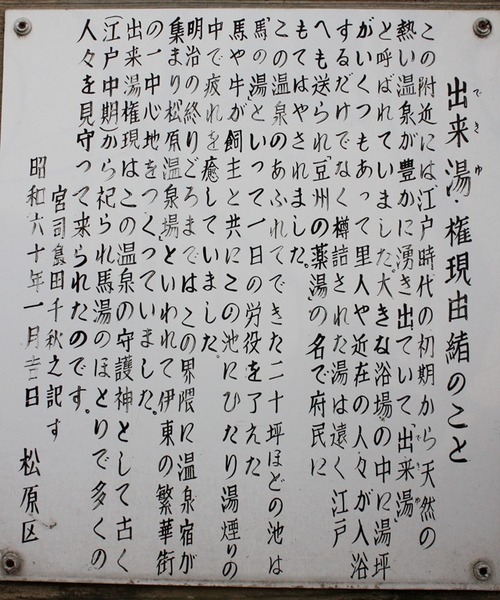 出来湯・権現由緒のこと
この附近には江戸時代の初期から天然の
熱い温泉が豊かに湧き出ていて「出来湯」
と呼ばれていました。大きな浴場の中に湯坪
がいくつもあって里人や近在の人々が入浴
するだけでなく樽詰された湯は遠く江戸
へも送られ「豆州の薬湯」の名で府民に
もてはやされました。
この温泉のあふれてできた二十坪ほどの池は
「馬の湯」といって一日の労役を了えた
馬や牛が飼主と共にこの池にひたり湯煙りの
中で疲れを癒していました。
明治の終りごろまではこの界隈に温泉宿が
集まり「松原温泉場」といわれて伊東の繁華街
の一中心地をつくっていました。
出来湯権現はこの温泉の守護神として古く
(江戸中期)から祀られ馬湯のほとりで多くの
人々を見守って来られたのです。
宮司島田千秋之記す
昭和六十年一月吉日 松原区